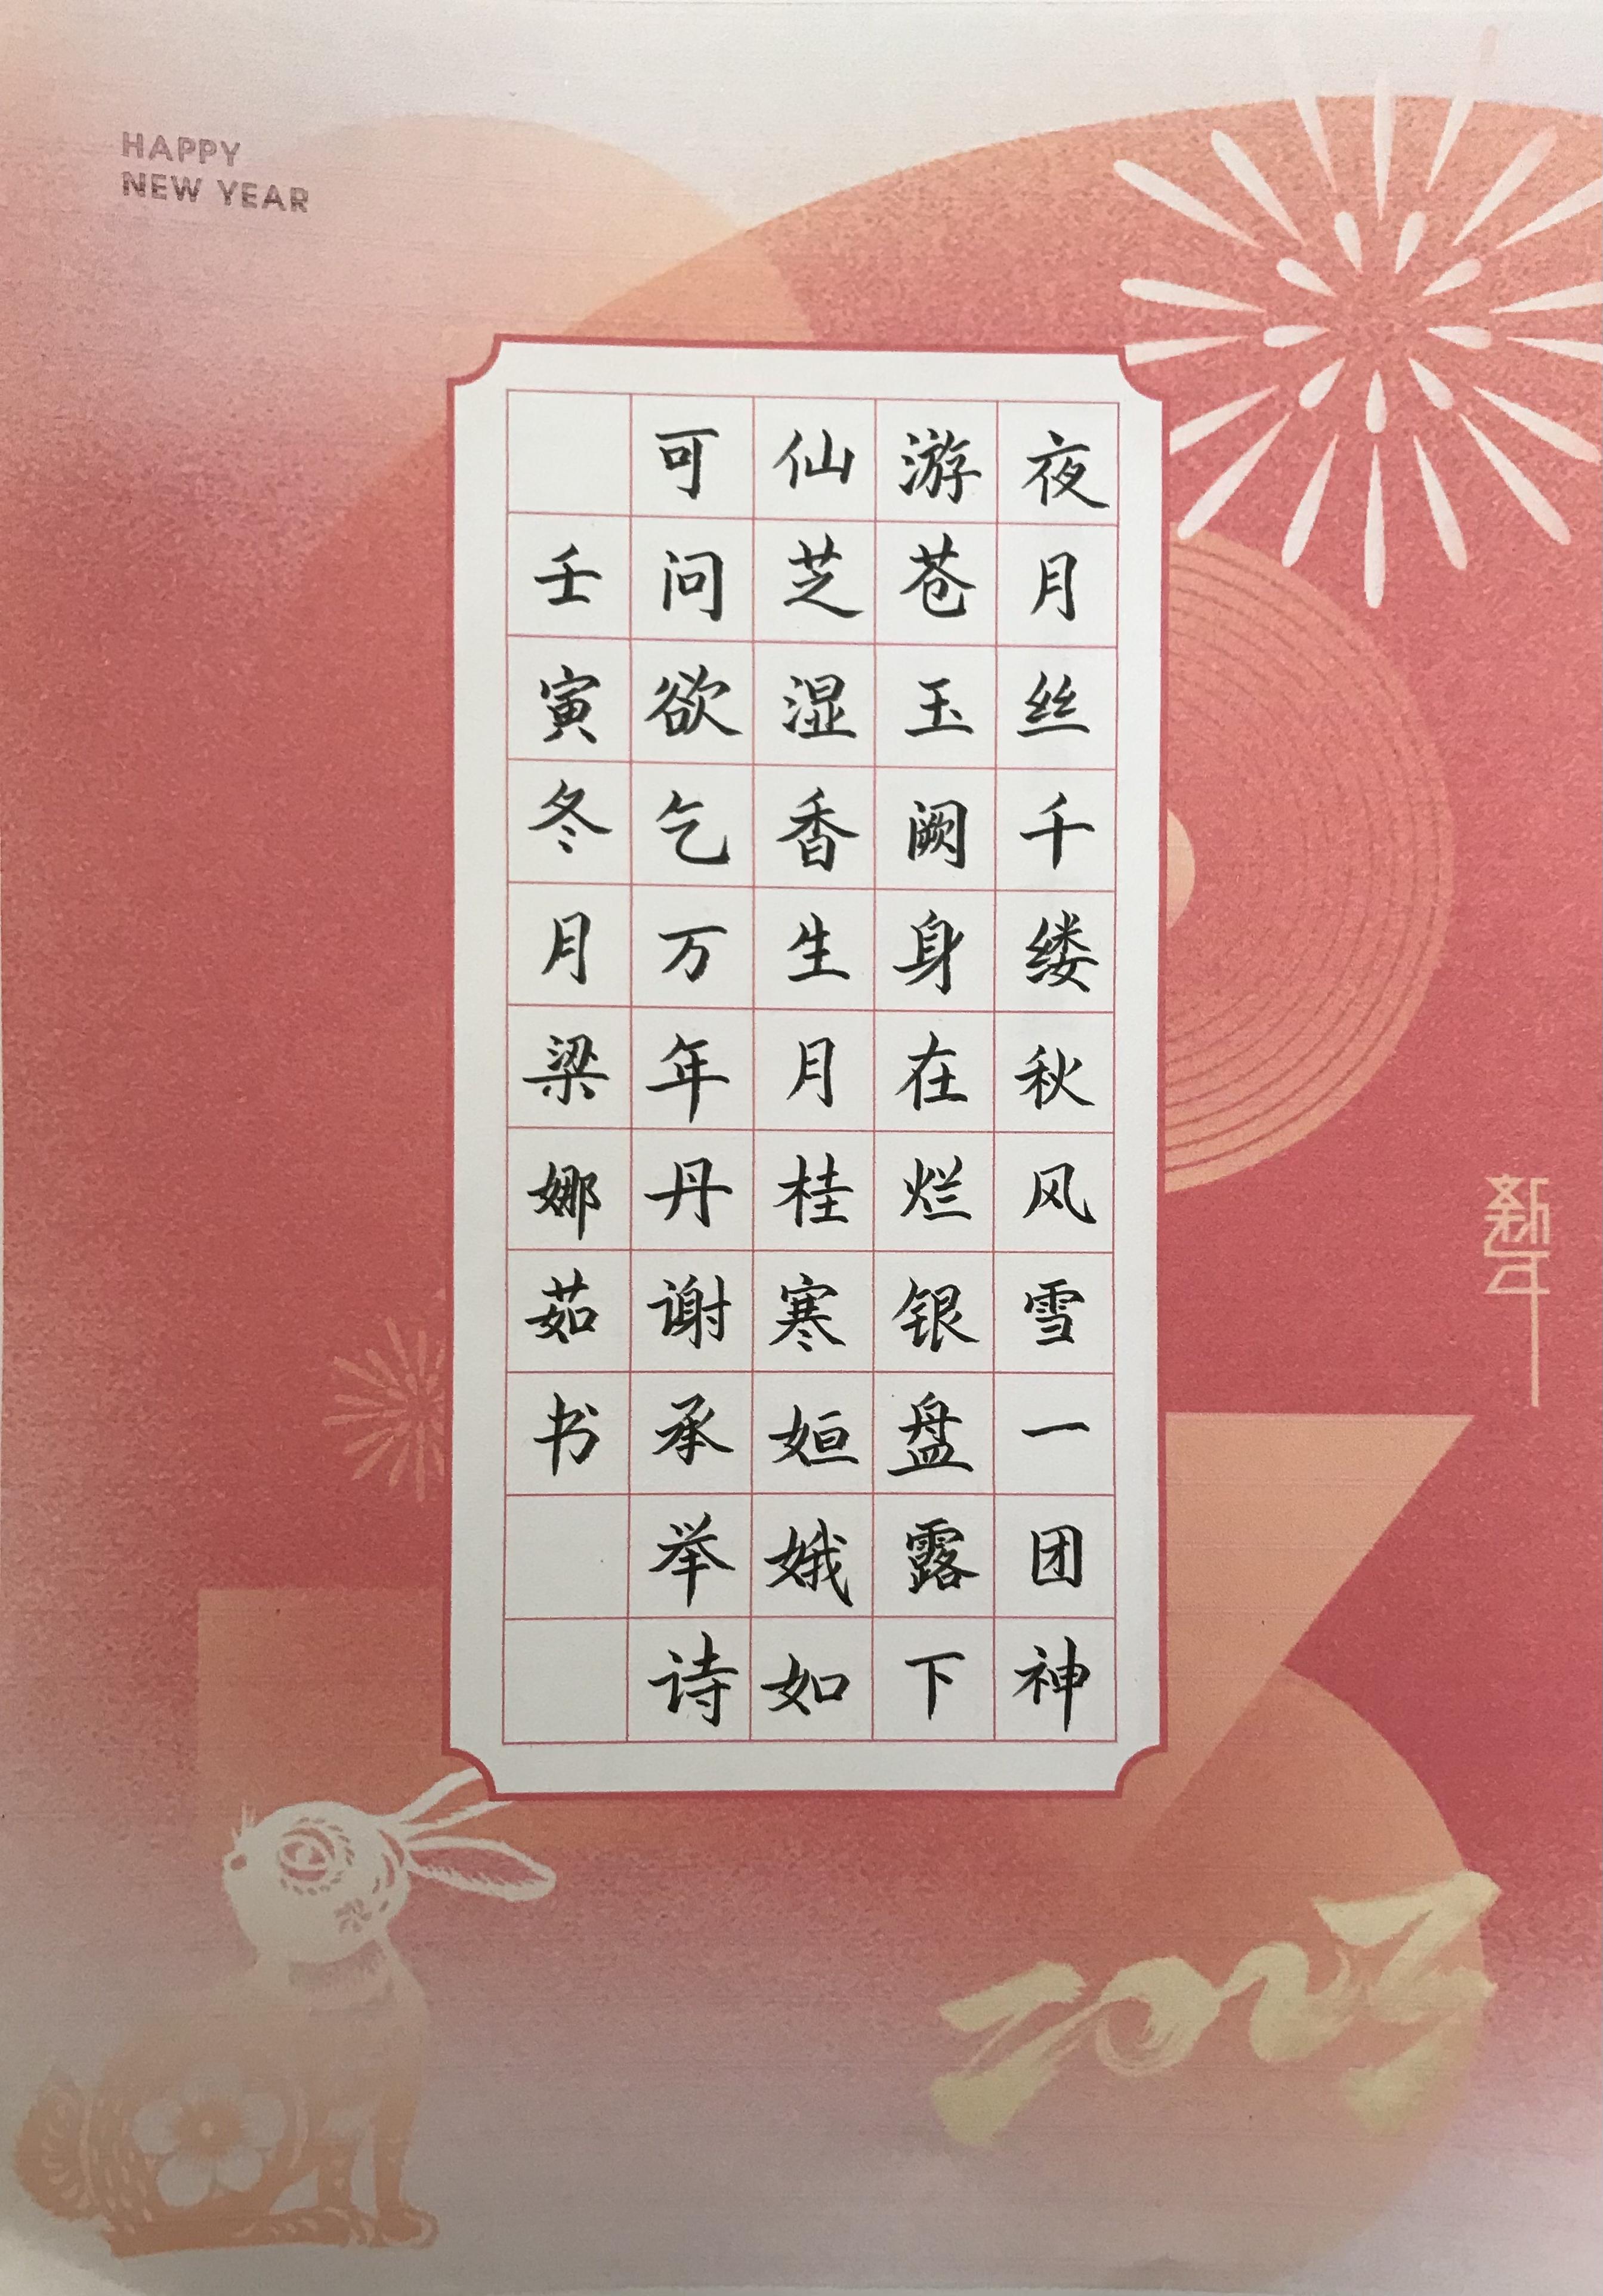 HAPPY
NEW YEAR
夜月丝千缕秋风雪一团神
游苍玉阙身在烂银盘露下
仙芝湿香生月桂寒姮娥如
可问欲乞万年丹谢承举诗
壬寅冬月梁娜茹书
新年
2023